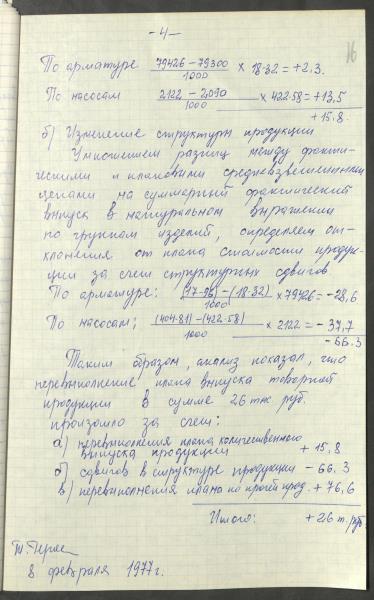 -4-
16
По арматуре 79426-79300/1000 × 18-32=+2,3.
По насосам 2122-2090/1000 × 422-58=+13,5
+15.8.
б) Изменение структуры продукции
Умножением разниц между факти-
ческими и плановыми средневзвешенными
ценами на суммарный фактический
выпуск в натуральном выражении
по группам изделий, определяем от-
клонения от плана стоимости продук-
ции за счет структурных сдвигов
По арматуре: (17-96)-(18-32)/1000 × 79426=-28,6
По насосам: (404-81)-(422-58)/1000 × 2122=-37,7
-66.3
Таким образом, анализ показал, что
перевыполнение плана выпуска товарной
продукции в сумме 26 тыс руб.
произошло за счет:
а) перевыполнения плана количественного
выпуска продукции +15,8
б) сдвигов в структуре продукции -66.3
в) перевыполнения плана по прочей прод. +76,6
Итого: +26 т.руб.
8 февраля 1977г.